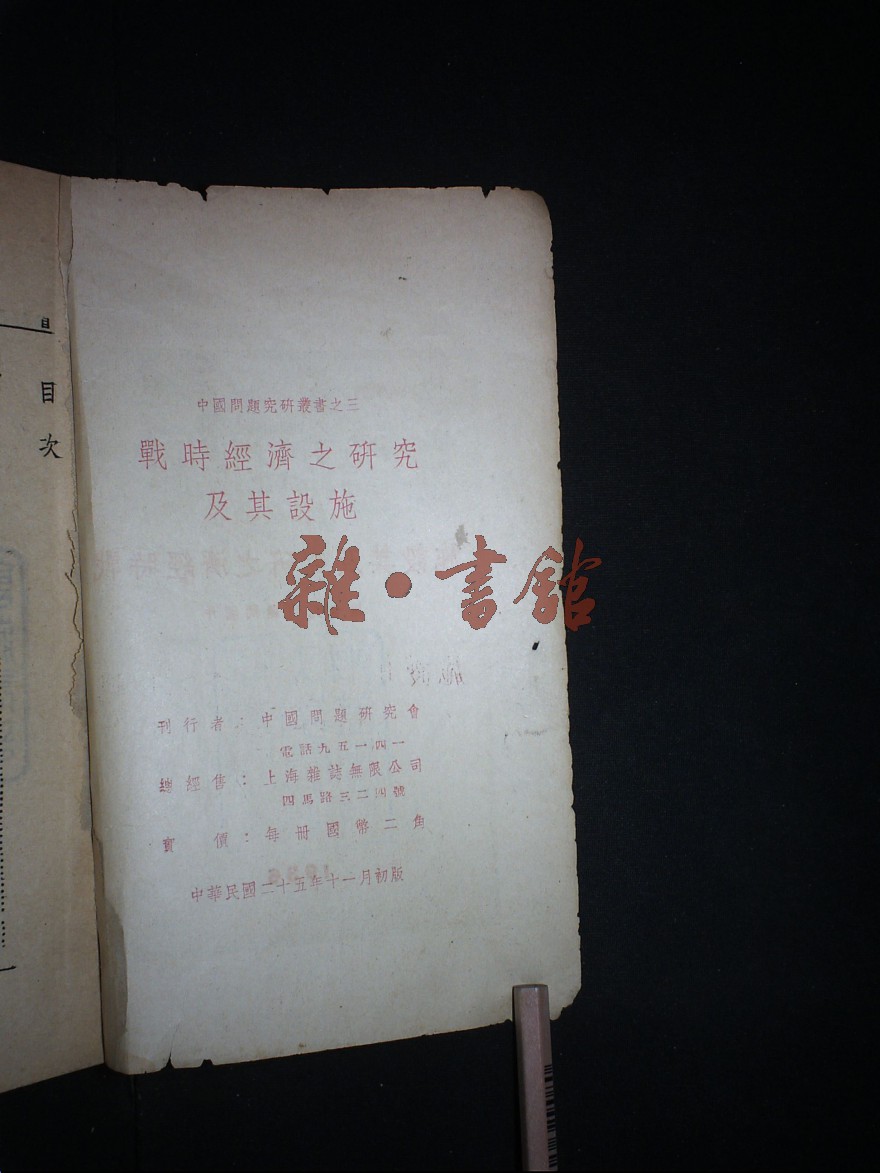 中國問題究研叢書之三
戰時經濟之研究
及其設施
雜・書館
刊行者：中國問題研究會
電話九五一四一
總經售：上海雜誌無限公司
四馬路三二四號
實價：每冊國幣二角
中華民國二十五年十一月初版
目次